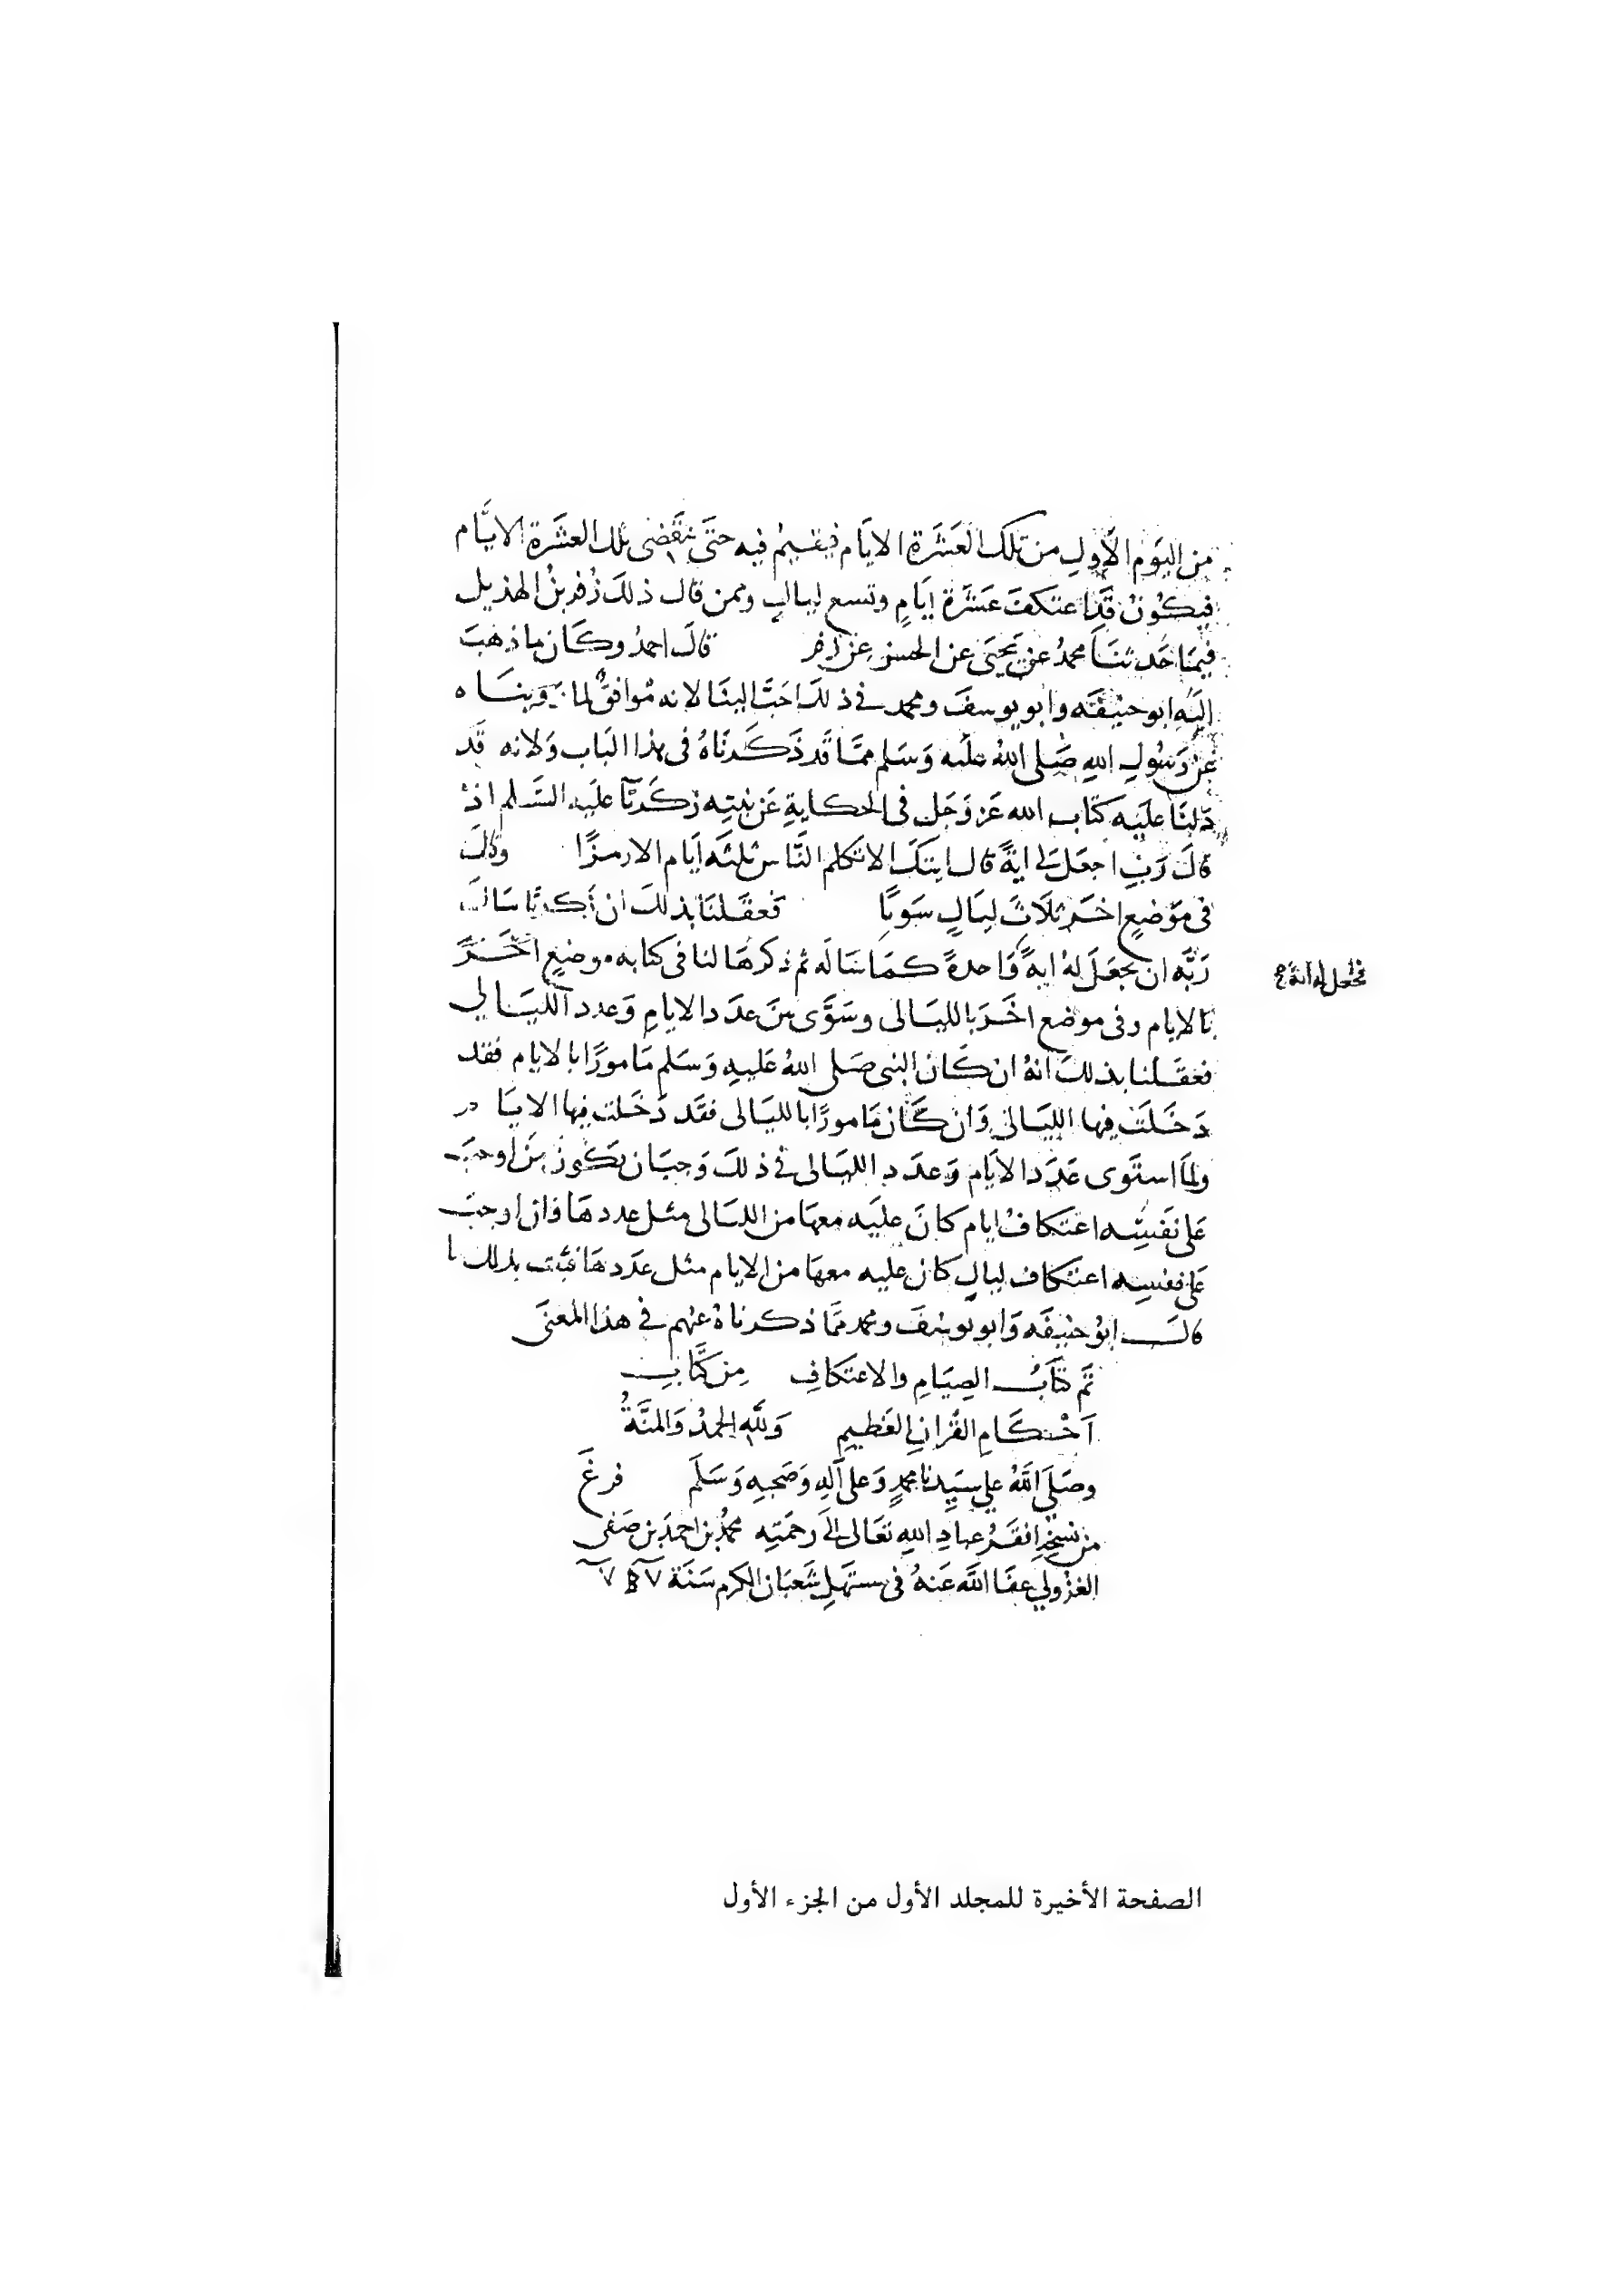 من اليَوم الأولِ من تلكَ العَشَرَة الايَام فيقيمُ فيه حتَى تنقَضى تلك العشَرة الايَّام
فيكُونُ قَدِ اعتكفَ عَشَرَة ايَامٍ وتسع ليالٍ وممن قال ذلكَ زُفر بنُ الهذيل
فيمَا حَدثنَا محمدُ عن يَحيَى عن الحسن عن زفر قالَ احمدُ وكَان ما ذهبَ
اليَهِ ابو حنيْفَه وابو يوسفَ ومحمد فى ذلكَ احَبَّ الينَا لانه مُوافقٌ لما رَوينَاه
عن رَسُولِ اللهِ صَلى اللهُ علَيه وَسَلم ممَّا قَد ذَكَرنَاهُ فى هذا البَاب وَلانه قَد
دَلنَا علَيَه كتَاب الله عَز وَجَل فى الحكايةِ عَن نبيّه زكَريّا علَيه السَّلم اذْ
قالَ رَبِ اجعَل لى ايةً قال ايتكَ الا تكلم النَّاس ثلثَه اَيام الا رمزًا وقالَ
فى مَوّضعٍ اخَر ثلَاثَ ليَالٍ سَويًا فعقَلنَا بذلكَ ان زَكريَّا سَالَ
رَبَّه ان يجعَلَ لهُ ايةً وَاحدةً كمَا سَالَه ثم ذكرهَا لنا فى كتابه موضعٍ اخَرً
فجعل له اية صح
بالايام وفى موضع اخَرَ بالليَالى وسَوَّى بينَ عدَد الايامِ وَعدد اللَّيَالي
فعقَلنا بذلكَ انهُ ان كَانَ النبى صَلى اللهُ عَليهِ وَسَلم مَامورًا بالايام فقد
دَخَلَتْ فيها الليَالى وَان كَّانَ مَامورًا بالليَالى فقَد دَخَلت فيها الايَا م
ولمَا استَوى عَدَد الايَام وَعدَد الليَالى فى ذلكَ وَجبَ ان يَكون مَن اوجبَ
عَلى نفَسِه اعتكافُ ايام كَانَ علَيَه معهَا من الليَالى مثل عددهَا فان اوجبَ
عَلى نفسِه اعتكاف ليالٍ كان عليه معهَا من الايام مثل عدَدهَا فثبت بذلك ما
قالــ ابوُ حنيفَه وَابو يوسُفَ ومحمد ممَّا ذكرناهُ عنهم فى هذا المعنَى
تَم كتَابُ الصِيَامِ والاعتكافِ مِن كتَّابِ
اَحْكَامِ القُرانِ العَظيمِ وَلِلَّهِ الحمدُ وَالمنَّةُ
وصَلَى اللَّهُ علي سَيِدنا محمدٍ وَعلى آلهِ وَصَحبهِ وَسَلَم فرغَ
من نسخِهِ افقَرُ عبادِ اللهِ تعَالى الَى رحمَتِه محمدُ بن احمَد بن صَفى
الغزُولي عفَا اللَّه عَنهُ فى مستهَلِ شَعبَان المكرم سَنَة
الصفحة الأخيرة للمجلد الأول من الجزء الأول